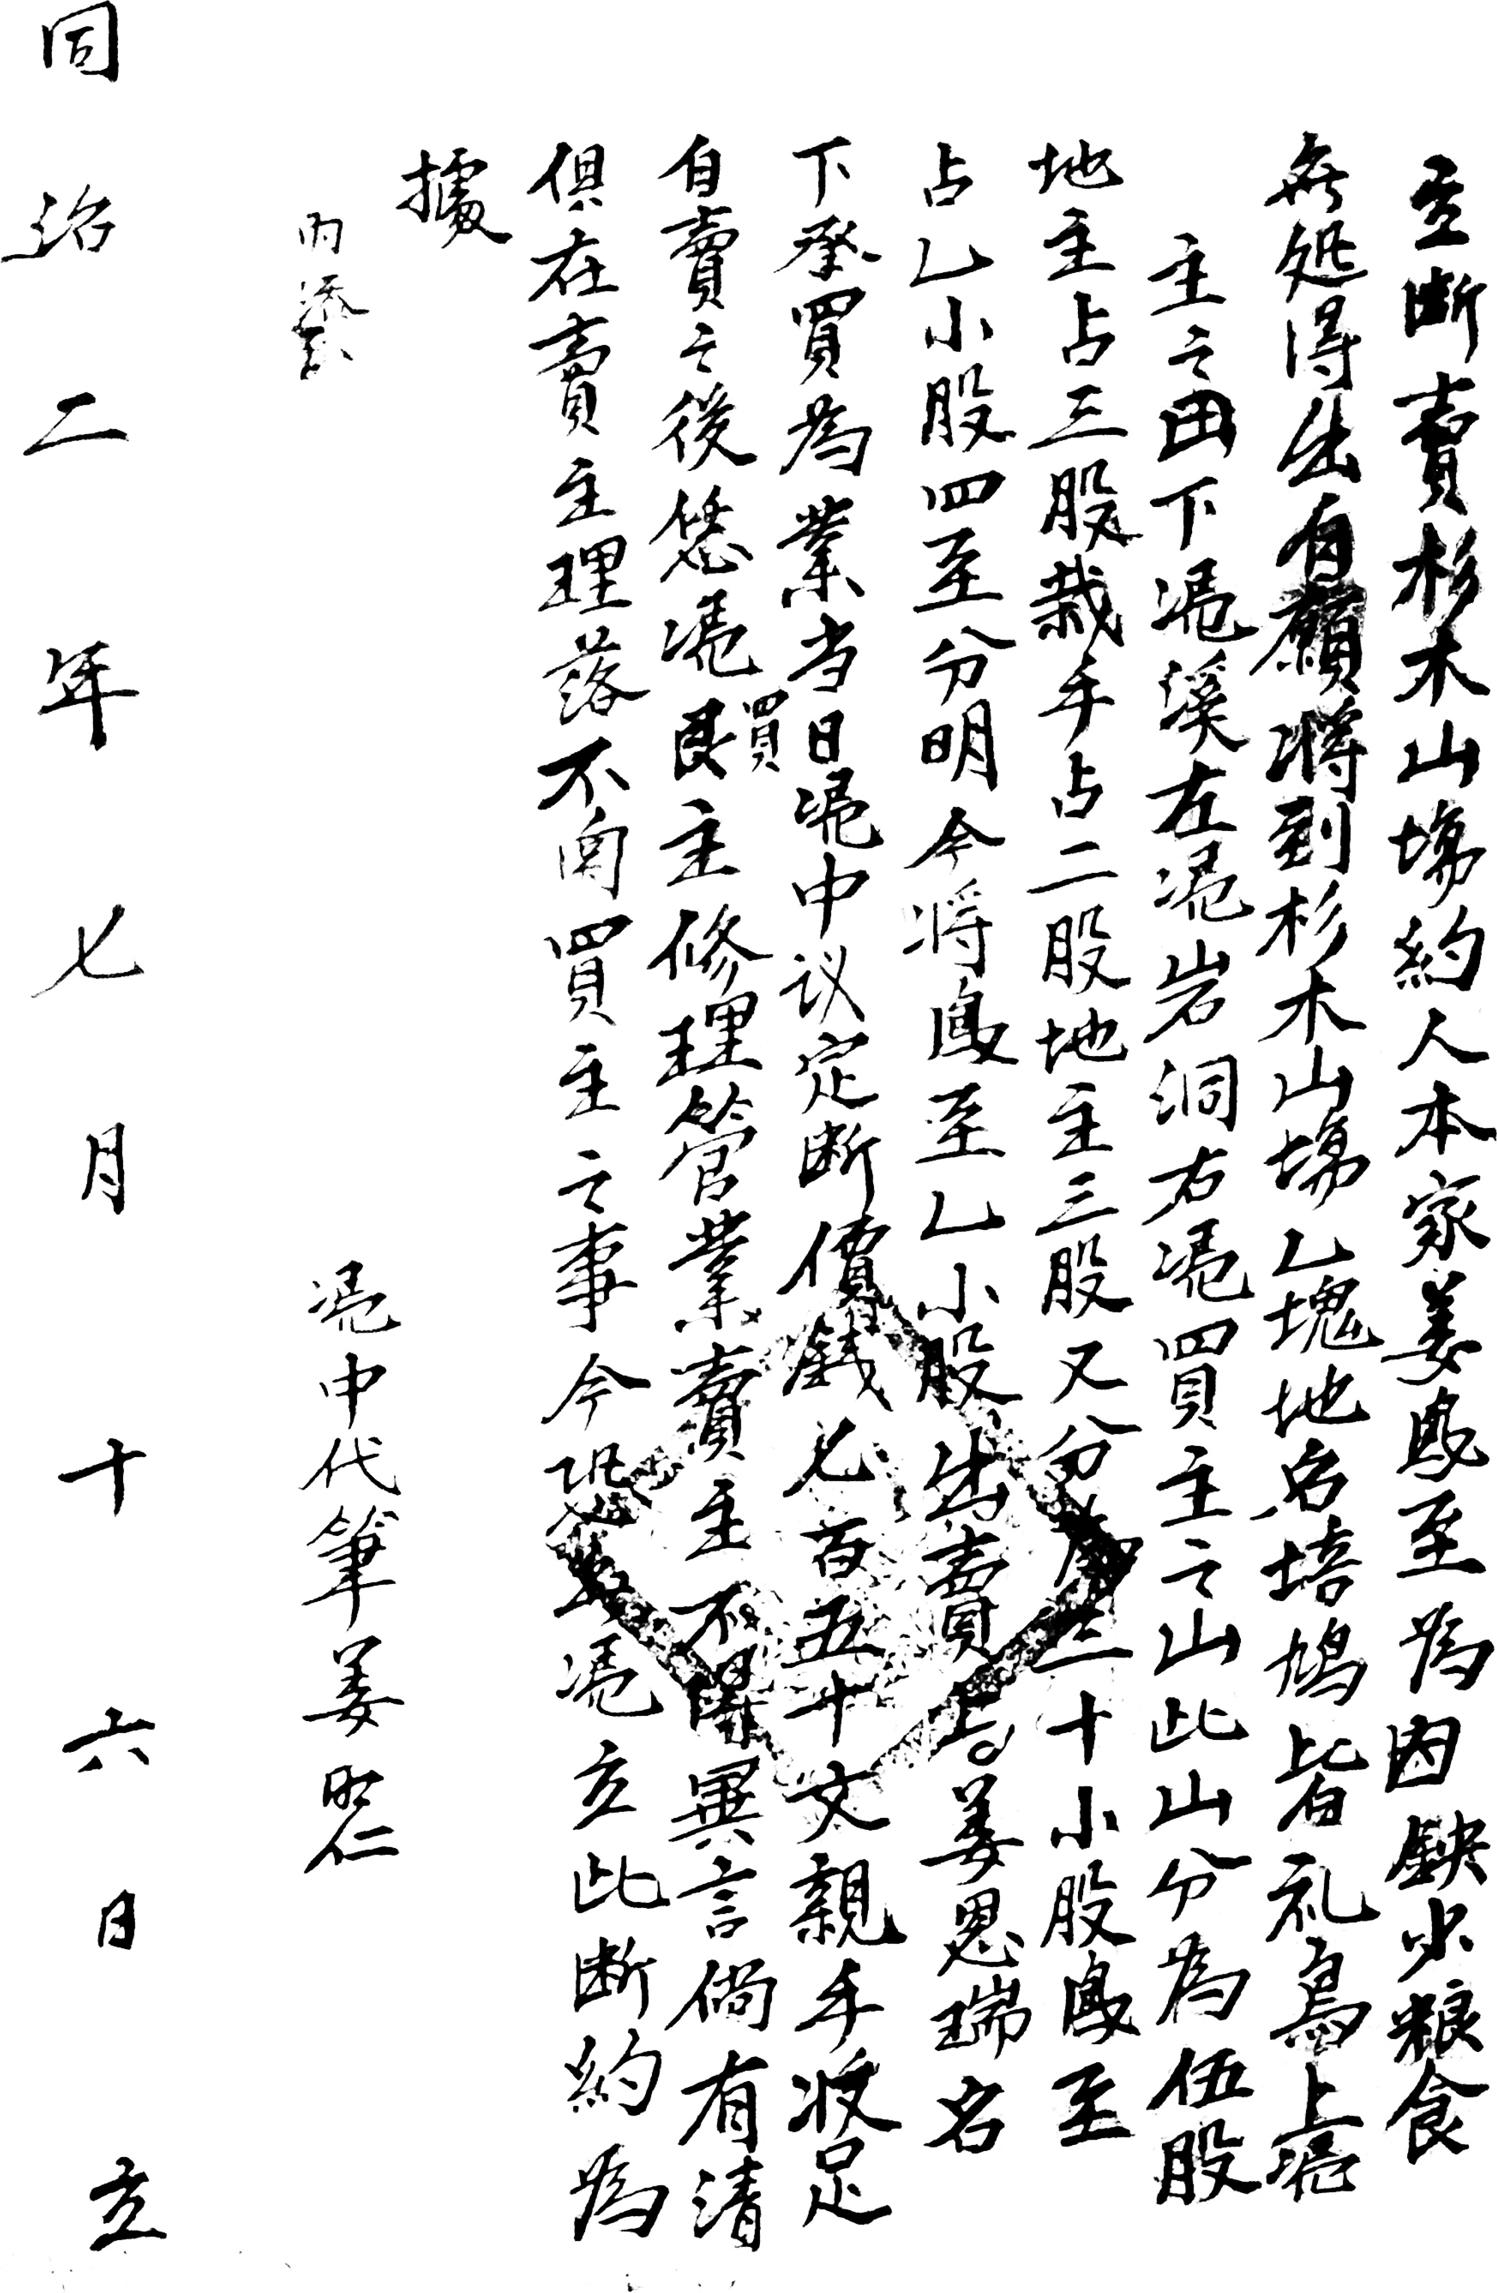 立断賣杉木山塲約人本家姜鳳至為因缺少粮食
無処得出自願将到杉木山塲乙塊地名培鳩皆礼烏上凴
主之田下凴溪左凴岩洞右凴買主之山此山分為伍股
地主占三股栽手占二股地主三股又分為三十小股鳳至
占乙小股四至分明今将鳳至乙小股出賣与姜恩瑞名
下承買為業当日凴中议定断價錢七百五十文親手收足
自賣之後恁凴買主修理管業賣主不得異言倘有清
俱在賣主理落不関買主之事今恐無凴立此断約為
據
内添
凴中代筆姜熙仁
同治二年七月十六日立